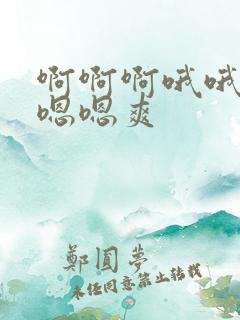 啊啊啊哦哦
嗯嗯爽
鄭圓夢
未经同意禁止转载